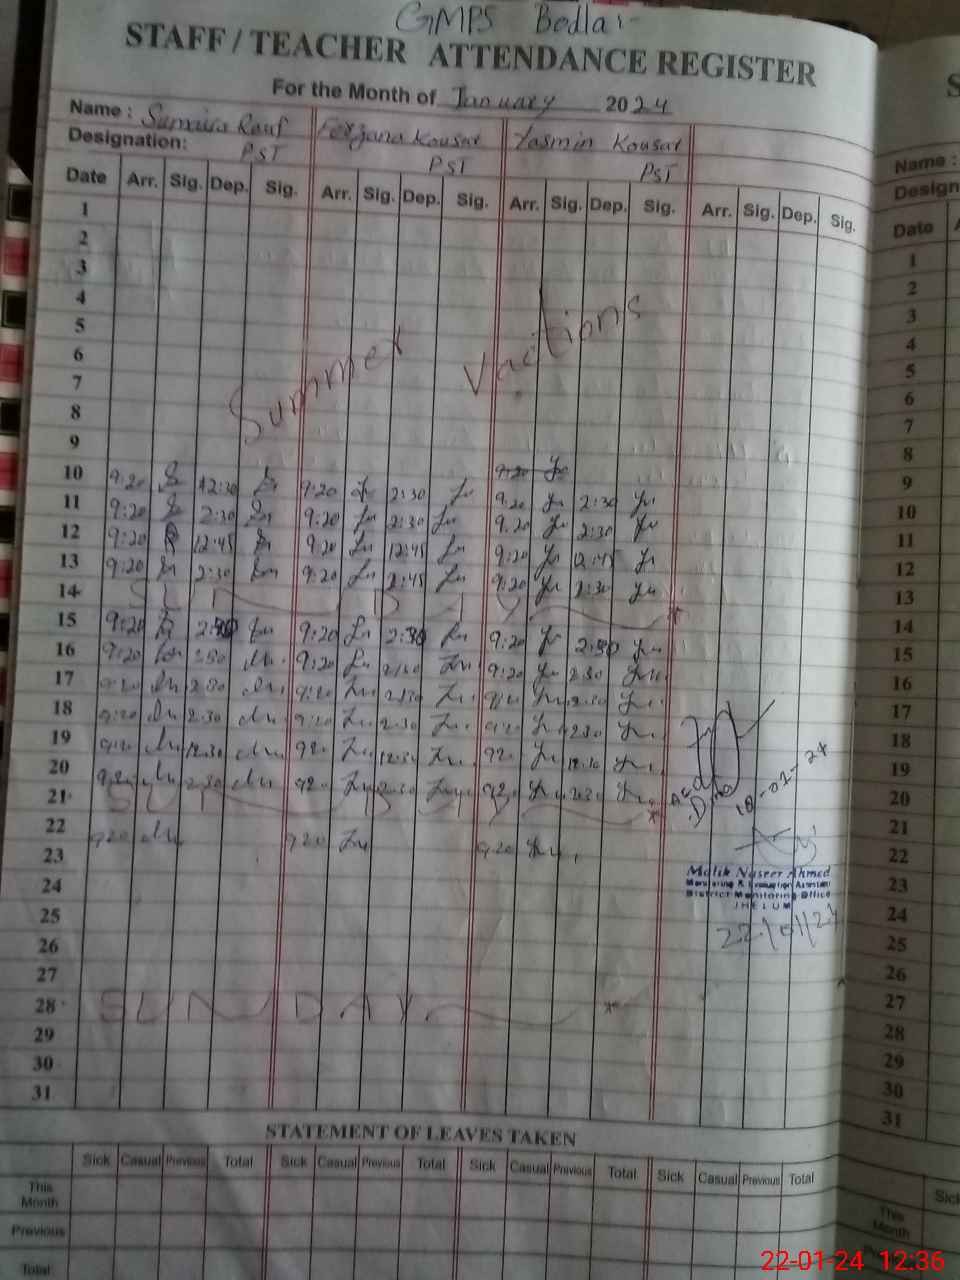 GMPS Bedla:-
STAFF / TEACHER ATTENDANCE REGISTER
For the Month of January 2024
Name : Sumaira Rauf Farzana Kousar Yasmin Kousar
Designation: PST PST PST
Date Arr. Sig. Dep. Sig. Arr. Sig. Dep. Sig. Arr. Sig. Dep. Sig. Arr. Sig. Dep. Sig.
1
2
3
4
5
6
7
8
9
Summer Vactions
10 9:20 12:30 9:20 2:30 9:20 2:30
11 9:20 2:30 9:20 2:30 9:20 2:30
12 9:20 12:45 9:20 12:45 9:20 12:45
13 9:20 2:30 9:20 2:45 9:20 2:30
14 SUNDAY
15 9:20 9:20 2:30 9:20 2:30
16 9:20 9:20 2:30 9:20 2:30
17 9:20 2:30 9:20 2:30 9:20 2:30
18 9:20 2:30 9:20 2:30 9:20 2:30
19 9:20 12:30 920 12:30 920 12:30
20 9:20 2:30 920 2:30 920 2:30
21 SUNDAY
22 920 920 920
23
24
25
26
27
28 SUNDAY
29
30
31
18-01-24
Malik Naseer Ahmed
Monitoring & Evaluation Assistant
District Monitoring Office
JHELUM
22/01/24
STATEMENT OF LEAVES TAKEN
Sick Casual Previous Total Sick Casual Previous Total Sick Casual Previous Total Sick Casual Previous Total
This Month
Previous
Total
S
Name :
Design
Date A
1
2
3
4
5
6
7
8
9
10
11
12
13
14
15
16
17
18
19
20
21
22
23
24
25
26
27
28
29
30
31
Sick
This Month
22-01-24 12:36